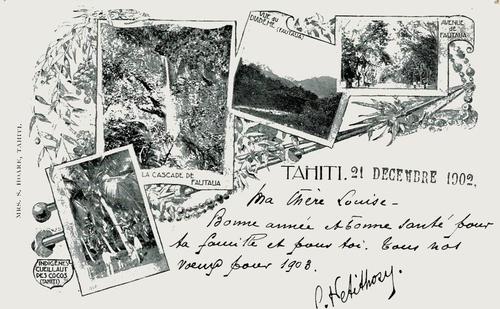 VUE du
DIADÈME (FAUTAUA)
AVENUE DE
FAUTAUA
LA CASCADE DE FAUTAUA
MRS. S. HOARE, TAHITI.
TAHITI. 21 DECEMBRE 1902.
Ma Chère Louise -
Bonne année et bonne santé pour
ta famille et pour toi. Tous nos
voeux pour 1903.
INDIGÈNES
CUEILLAUT
DES COCOS
(TAHITI)